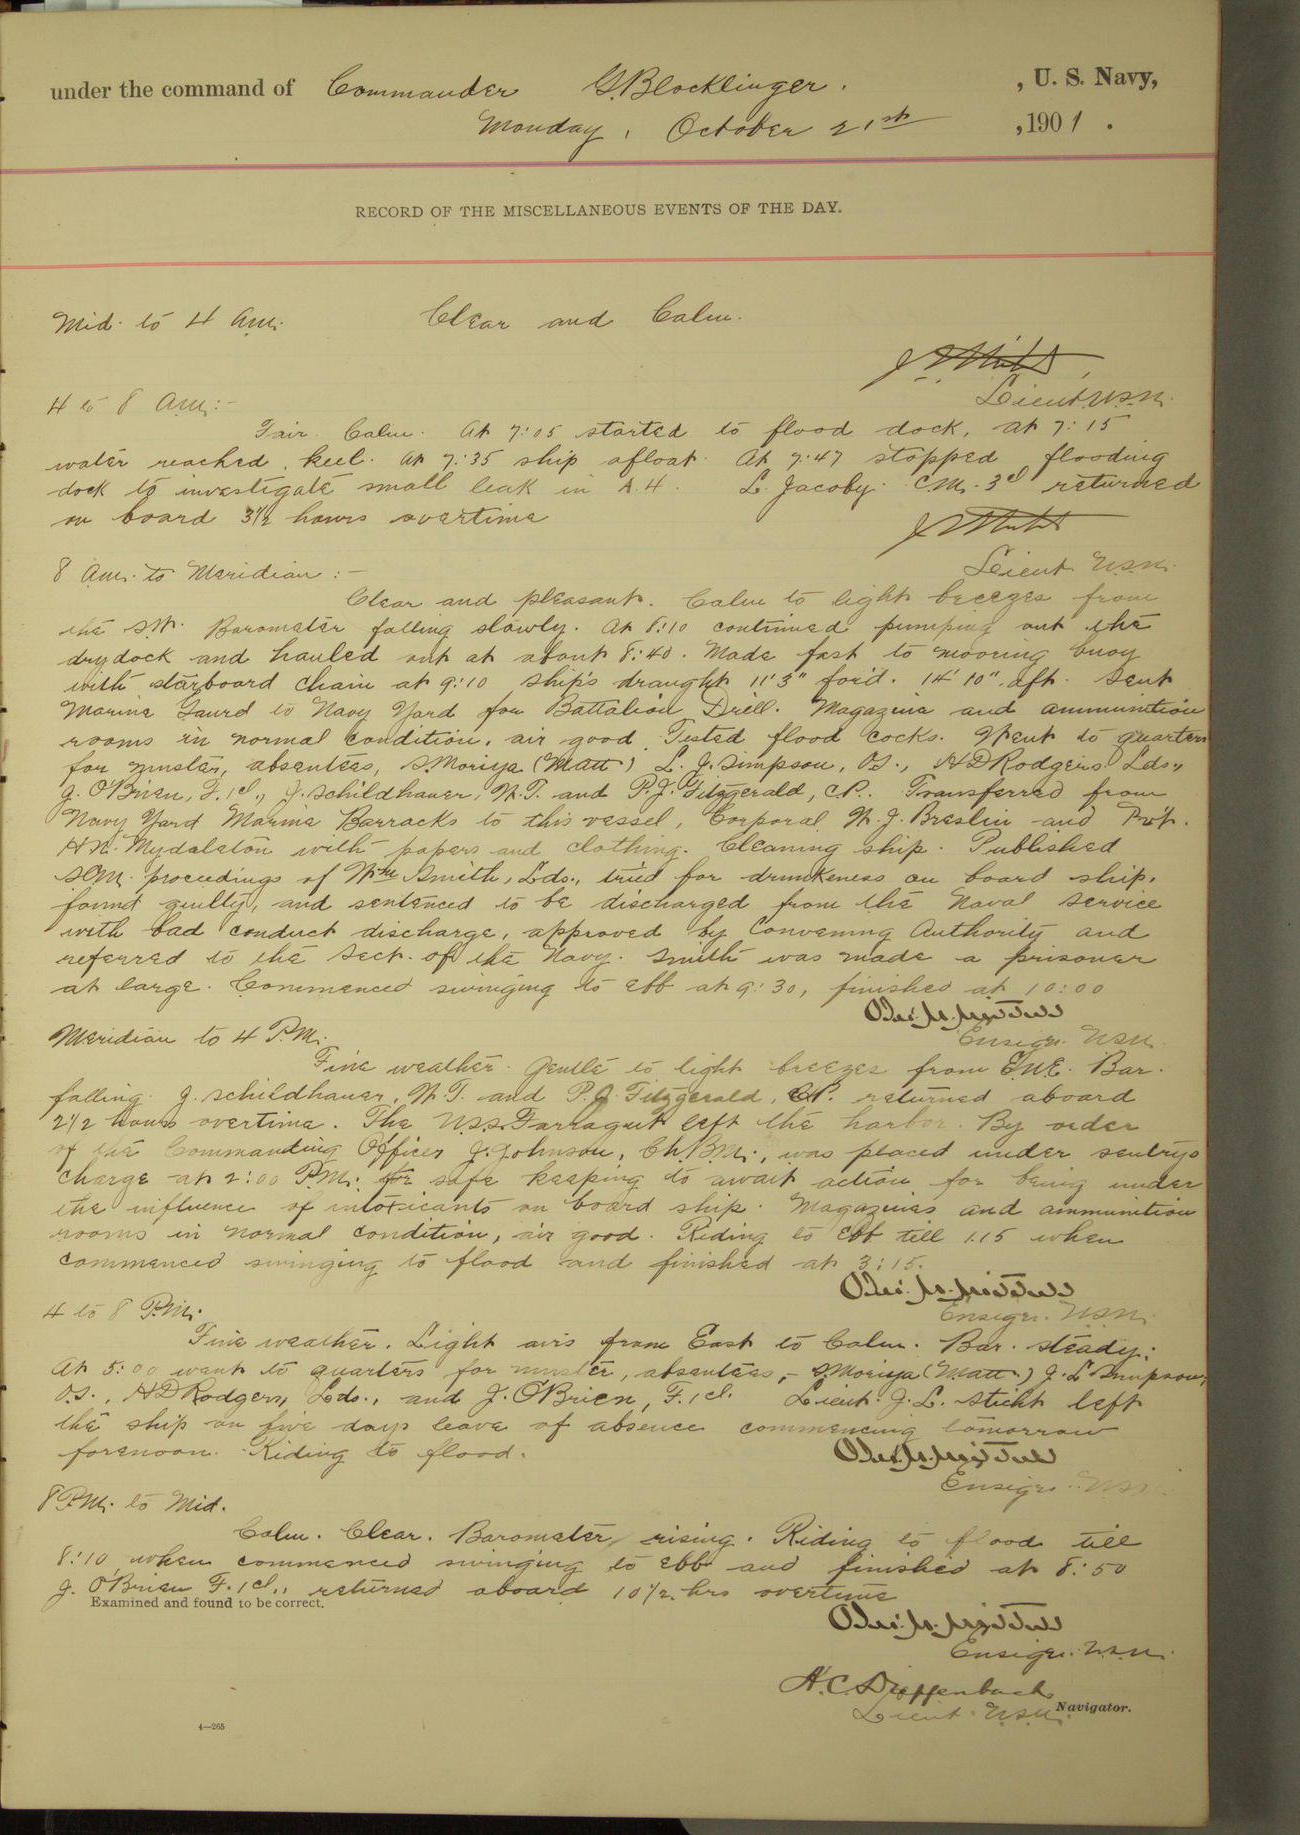 under the command of Commander G. Blocklinger. , U. S. Navy,
Monday, October 21st , 1901 .
RECORD OF THE MISCELLANEOUS EVENTS OF THE DAY.
Mid. to 4 A.M. Clear and Calm.
Lieut. U.S.N.
4 to 8 A.M:-
Fair. Calm. At 7:05 started to flood dock, at 7:15
water reached keel. At 7:35 ship afloat. At 7:47 stopped flooding
dock to investigate small leak in A.4. L. Jacoby C.M. 3d returned
on board 3½ hours overtime
Lieut. U.S.N.
8 A.M. to Meridian:-
Clear and pleasant. Calm to light breezes from
the S.W. Barometer falling slowly. At 8:10 continued pumping out the
drydock and hauled out at about 8:40. Made fast to mooring buoy
with starboard chain at 9:10 Ship's draught 11'3" for'd. 14'10" aft. Sent
Marine Gaurd to Navy Yard for Battalion Drill. Magazine and ammunition
rooms in normal condition, air good. Tested flood cocks. Went to quarters
for muster, absentees, S. Moriya (Matt) L. J. Simpson, O.S., H D Rodgers Lds.,
J. O'Brien, F.1cl., J. Schildhauer, W.T. and P.J. Fitzgerald, C.P. Transferred from
Navy Yard Marine Barracks to this vessel, Corporal W. J. Breslin and Pvt.
H.N. Mydaleton with papers and clothing. Cleaning ship. Published
S.C.M. proceedings of Wm Smith, Lds., tried for drunkeness on board ship,
found guilty, and sentenced to be discharged from the Naval Service
with bad conduct discharge, approved by Convening Authority and
referred to the Sect. of the Navy. Smith was made a prisoner
at large. Commenced swinging to ebb at 9:30, finished at 10:00
Ensign U.S.N.
Meridian to 4 P.M.
Fine weather. Gentle to light breezes from E.N.E. Bar.
falling. J. Schildhauer, W.T. and P.J. Fitzgerald, C.P. returned aboard
2½ hours overtime. The U.S.S. Farragut left the harbor. By order
of the Commanding Officer J. Johnson, Ch.B.M., was placed under sentry's
charge at 2:00 P.M. for safe keeping to await action for being under
the influence of intoxicants on board ship. Magazines and ammunition
rooms in normal condition, air good. Riding to ebb till 1.15 when
commenced swinging to flood and finished at 3:15.
Ensign. U.S.N.
4 to 8 P.M.
Fine weather. Light airs from East to Calm. Bar. steady.
At 5:00 went to quarters for muster, absentees,- S. Moriya (Matt.) J. L. Simpson,
O.S., H D Rodgers, Lds., and J. O'Brien, F.1cl. Lieut. J. L. Sticht left
the ship on five days leave of absence commencing tomorrow
forenoon. Riding to flood.
Ensign. U.S.N.
8 P.M. to Mid.
Calm. Clear. Barometer rising. Riding to flood till
8:10 when commenced swinging to ebb and finished at 8:50
J. O'Brien F.1cl., returned aboard 10½ hrs overtime
Examined and found to be correct.
Ensign. U.S.N.
H. C. Dieffenbach
Lieut. U.S.N. Navigator.
4—265